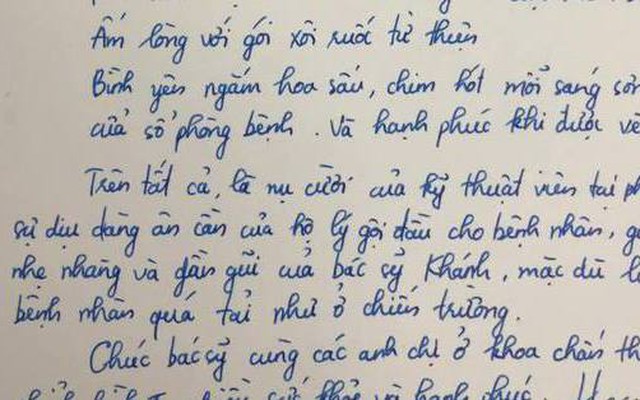 Ấm lòng với gói xôi ruốc từ thiện
Bình yên ngắm hoa sấu, chim hót mỗi sáng
cửa sổ phòng bệnh. Và hạnh phúc khi được về
Trên tất cả, là nụ cười của kỹ thuật viên tại
sự dịu dàng ân cần của hộ lý gội đầu cho bệnh nhân,
nhẹ nhang và gần gũi cuả bác sỹ Khánh, mặc dù
bệnh nhân quá tải như ở chiến trường.
Chúc bác sỹ cùng các anh chị ở khoa chấn
sức khỏe và hạnh phúc.